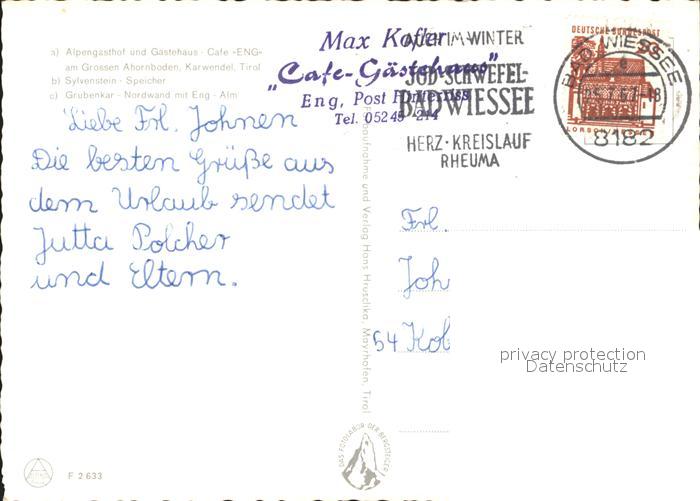 a) Alpengasthof und Gästehaus - Cafe »ENG«
am Grossen Ahornboden, Karwendel, Tirol
b) Sylvenstein - Speicher
c) Grubenkar - Nordwand mit Eng - Alm
Max Kofler
„Cafe-Gästehaus"
Eng, Post Hinterriss
Tel. 05245
AUCH IM WINTER
JOD-SCHWEFEL-
BAD WIESSEE
HERZ·KREISLAUF
RHEUMA
DEUTSCHE BUNDESPOST
LORSCH
BAD WIESSEE
8182
Liebe Frl. Johnen
Die besten Grüße aus
dem Urlaub sendet
Jutta Polcher
und Eltern.
Frl.
Joh
54 Kob
privacy protection
Datenschutz
Verlag Hans Hruschka, Mayrhofen, Tirol
DAS FOTOLABOR DER BERGSTEIGER
F 2633